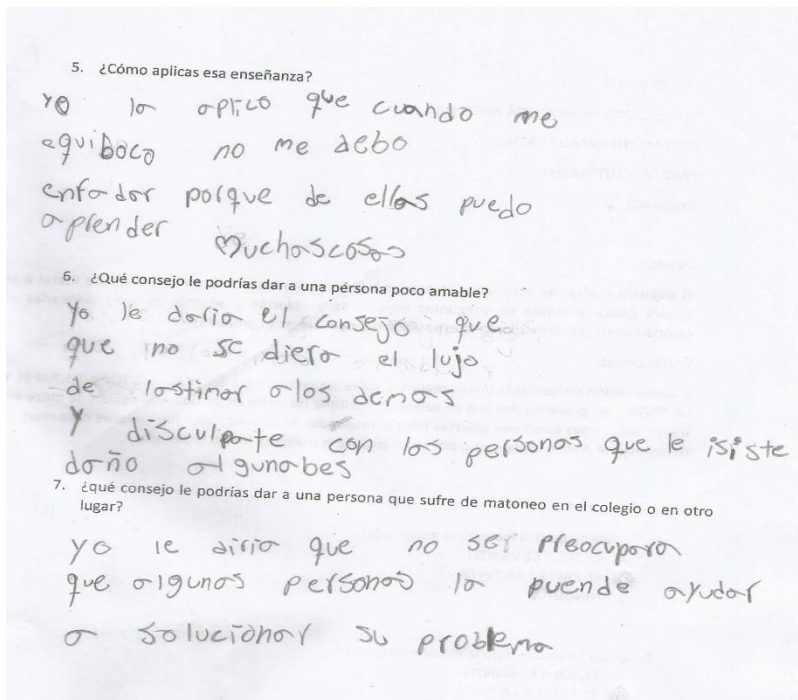 5. ¿Cómo aplicas esa enseñanza?
yo la aplico que cuando me
equiboco no me debo
enfadar porque de ellas puedo
aprender muchascosas
6. ¿Qué consejo le podrías dar a una persona poco amable?
yo le daria el consejo que
que no se diera el lujo
de lastimar alos demas
y disculpate con las personas que le isiste
daño algunabes
7. ¿qué consejo le podrías dar a una persona que sufre de matoneo en el colegio o en otro
lugar?
yo le diria que no sei preocupara
que algunas personas la puende ayudar
a solucionar su problema